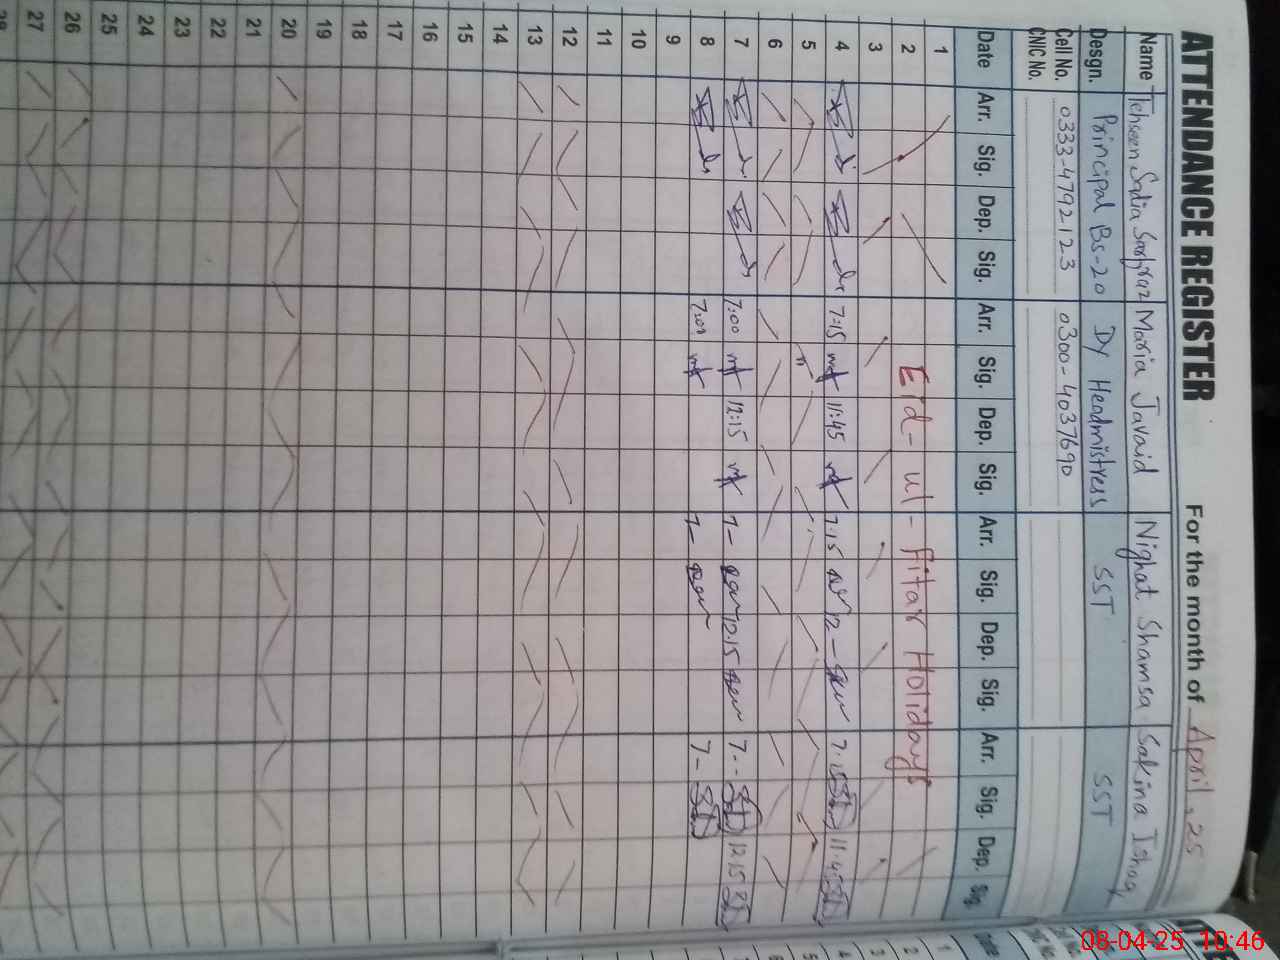 ATTENDANCE REGISTER For the month of April, 25
Name Tehseen Sadia Sarfraz Maria Javaid Nighat Shamsa Sakina Ishaq
Desgn. Principal BS-20 DY Headmistress SST SST
Cell No. 0333-4792123 0300-4037690
CNIC No.
Date Arr. Sig. Dep. Sig. Arr. Sig. Dep. Sig. Arr. Sig. Dep. Sig. Arr. Sig. Dep. Sig.
1
2 Eid-ul-Fitar Holidays
3
4 7:15 11:45 7:15 12- 7.15 11.45
5
6
7 7:00 12:15 7- 12.15 7.- 12.15
8 7:00 7- 7-
9
10
11
12
13
14
15
16
17
18
19
20
21
22
23
24
25
26
27
28
1
2
3
4
5
08-04-25 10:46